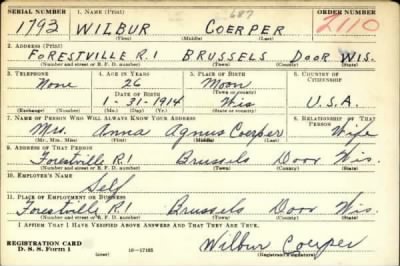 SERIAL NUMBER 1. NAME (Print) ORDER NUMBER
687
1793 WILBUR COERPER 2110
(First) (Middle) (Last)
2. ADDRESS (Print)
FORESTVILLE R.1 BRUSSELS DOOR WIS.
(Number and street or R. F. D. number) (Town) (County) (State)
3. TELEPHONE 4. AGE IN YEARS 5. PLACE OF BIRTH 6. COUNTRY OF CITIZENSHIP
None 26 Moon
DATE OF BIRTH (Town or county)
1-31-1914 Wis U.S.A.
(Exchange) (Number) (Mo.) (Day) (Yr.) (State or country)
7. NAME OF PERSON WHO WILL ALWAYS KNOW YOUR ADDRESS 8. RELATIONSHIP OF THAT PERSON
Mrs. Anna Agnus Coerper Wife
(Mr., Mrs., Miss) (First) (Middle) (Last)
9. ADDRESS OF THAT PERSON
Forestville R.1 Brussels Door Wis.
(Number and street or R. F. D. number) (Town) (County) (State)
10. EMPLOYER'S NAME
Self
11. PLACE OF EMPLOYMENT OR BUSINESS
Forestville R.1 Brussels Door Wis.
(Number and street or R. F. D. number) (Town) (County) (State)
I AFFIRM THAT I HAVE VERIFIED ABOVE ANSWERS AND THAT THEY ARE TRUE.
REGISTRATION CARD
D. S. S. Form 1 (over) 16-17105 Wilbur Coerper
(Registrant's signature)